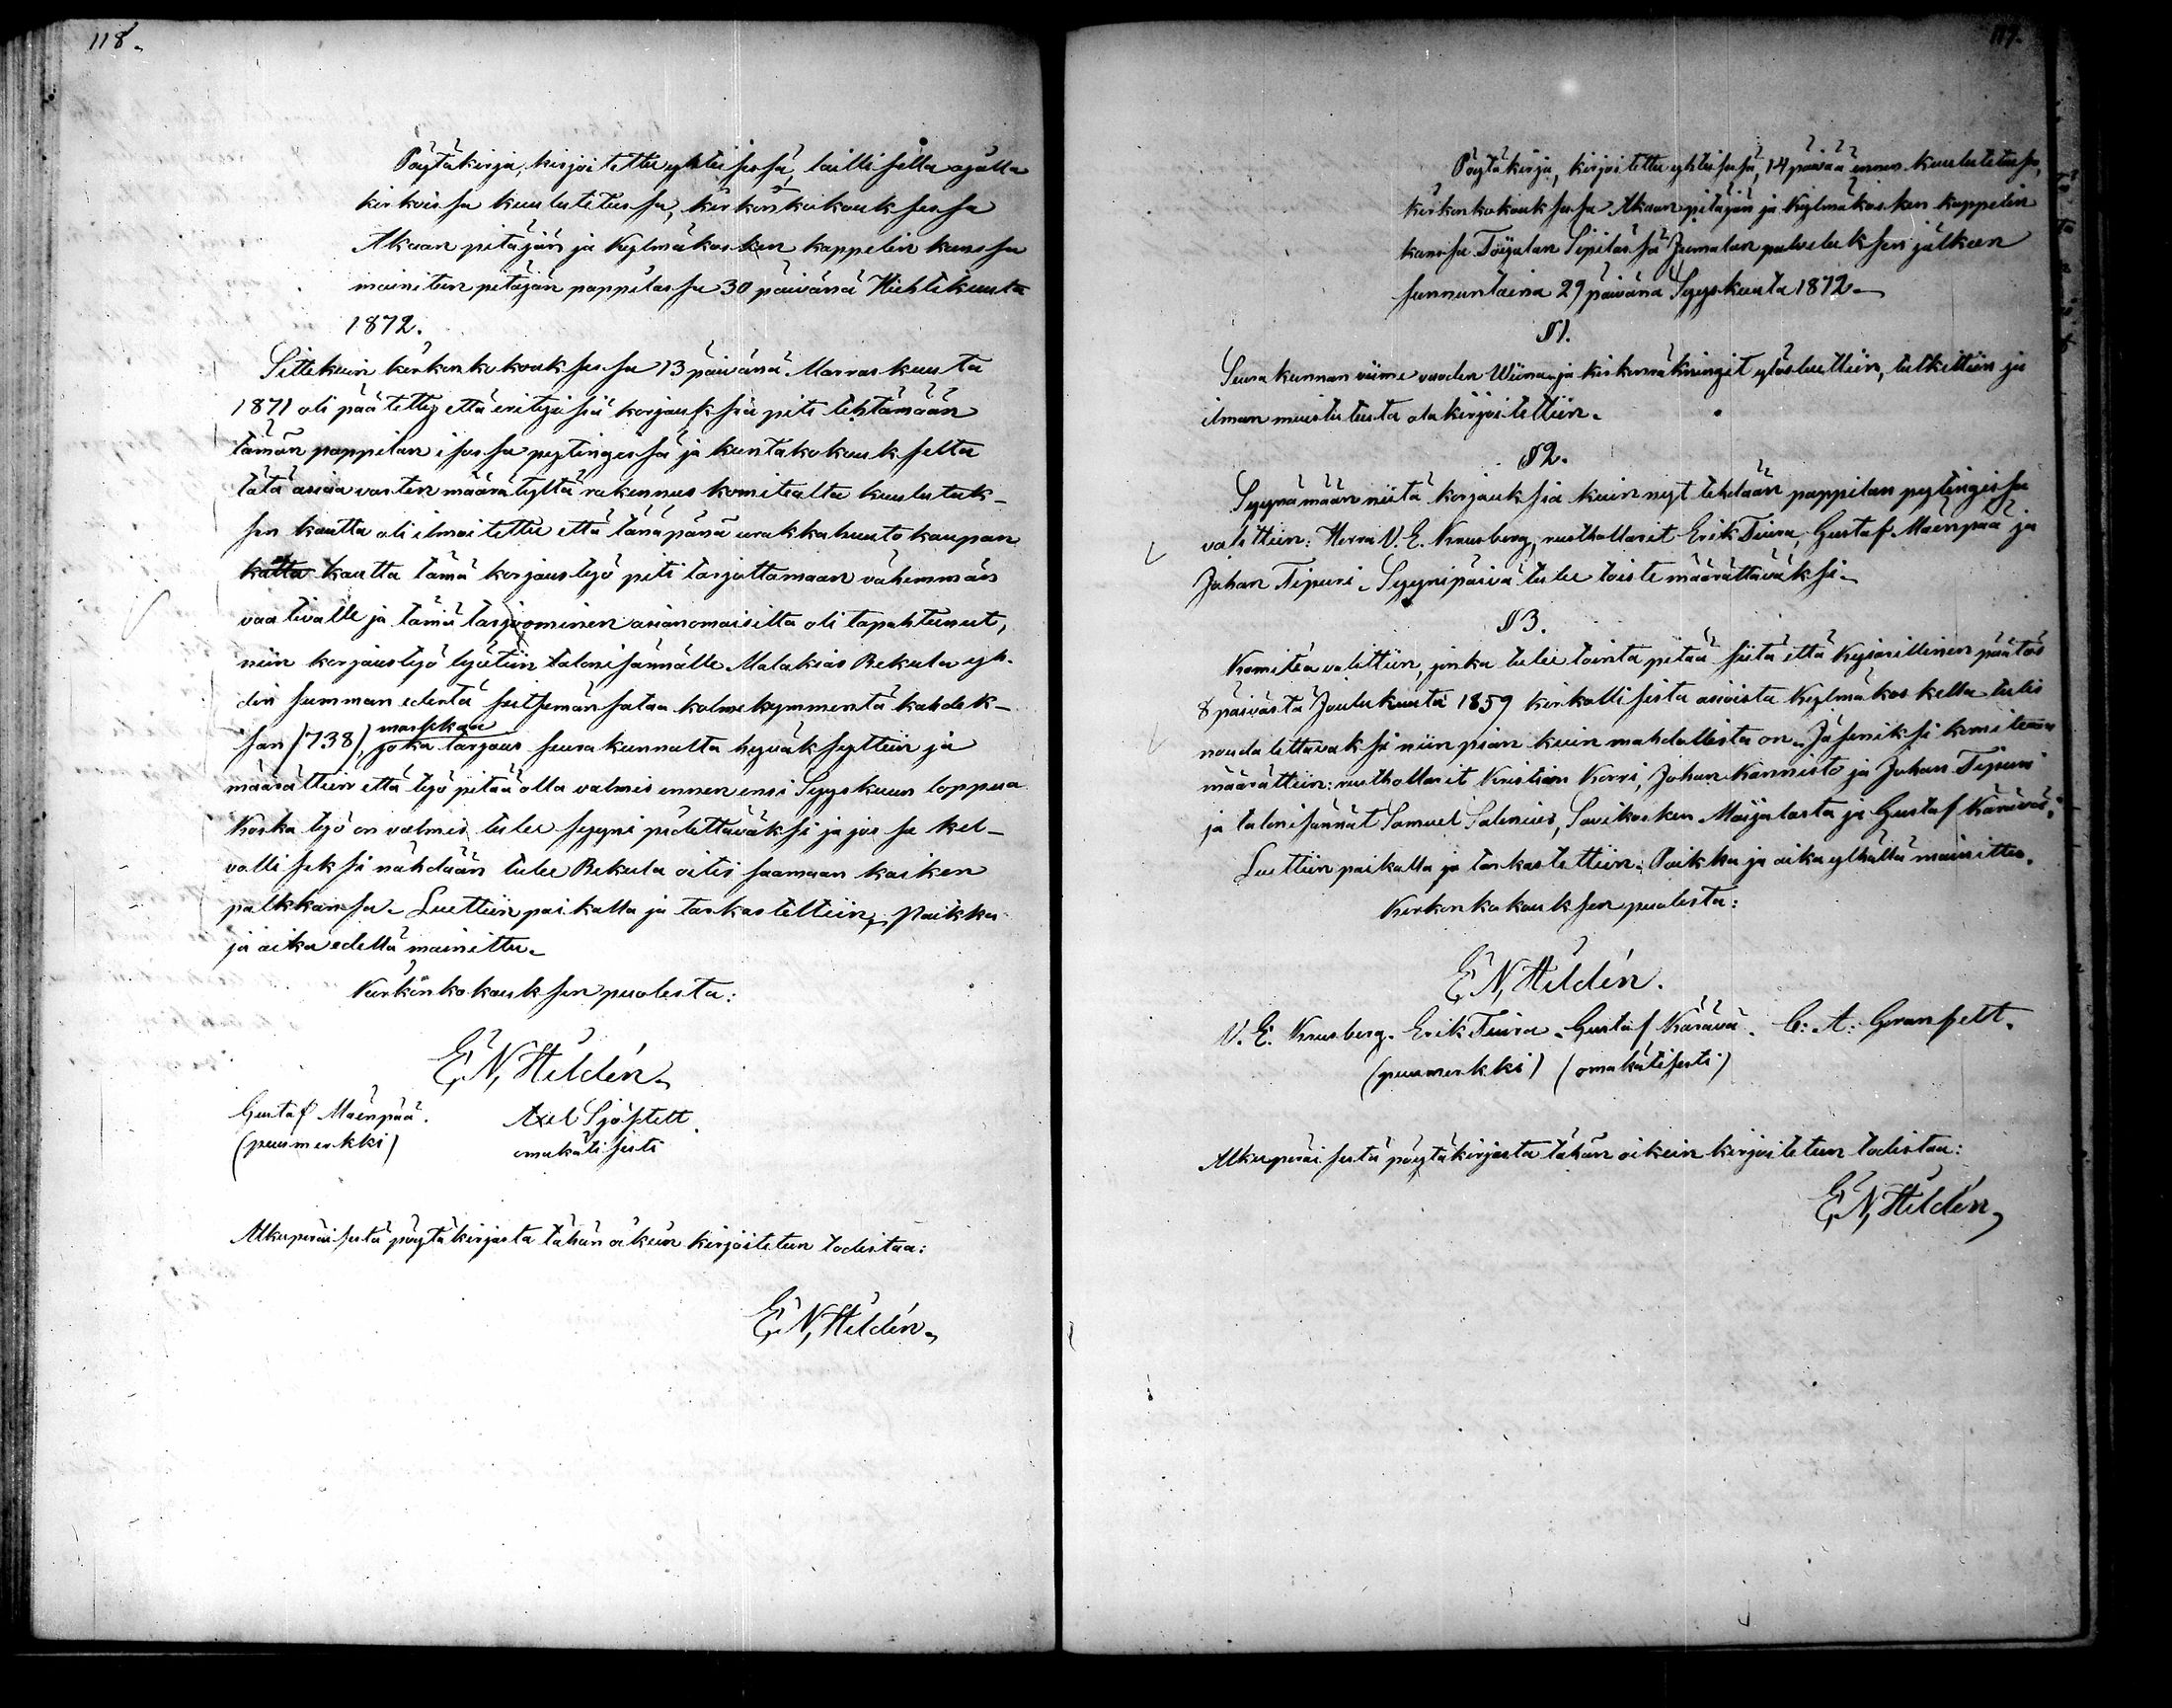 118.
Pöytäkirja, kirjoitettu yhteisessä, laillisella ajalla
kirkoissa kuulutetussa, kirkonkokouksessa
Akaan pitäjän ja Kylmäkosken kappelin kanssa
mainitun pitäjän pappilassa 30 päivänä Huhtikuuta
1872.
Sittekuin kirkonkokouksessa 13 päivänä Marraskuuta
1871 oli päätetty että erityisiä korjauksia piti tehtämään
tämän pappilan isossa pytingissä ja kuntakokoukselta
tätä asiaa varten määrätyltä rakennus komitealta kuulutuk-
sen kautta oli ilmoitettu että tänäpänä urakkahuuto kaupan
katta kautta tämä korjaustyö piti tarjottamaan vähemmän
vaativalle ja tämä tarjoominen asianomaisilta oli tapahtunut,
niin korjaustyö lyötiin talonisännälle Malakias Rekula yh-
den summan edestä seitsemänsataa kolmekymmentä kahdek-
san (738), markkaa joka tarjous seurakunnalta hyväksyttiin ja
määrättiin että työ pitää olla valmis ennen ensi Syyskuun loppua
Koska työ on valmis tulee syyni pidettäväksi ja jos se kel-
volliseksi nähdään tulee Rekula oitis saamaan kaiken
palkkansa. Luettiin paikalla ja tarkastettiin, Paikka
ja aika edellä mainittu.
Kirkonkokouksen puolesta:
E. N. Hildén.
Gustaf Mäenpää. Axel Sjöstett.
(puumerkki) omakätisesti
Alkuperäisestä pöytäkirjasta tähän oikein kirjoitetun todistaa:
E. N. Hildén.
117.
Pöytäkirja, kirjoitettu yhteisessä, 14 päivää ennen kuulutetussa,
kirkonkokouksessa Akaan pitäjän ja Kylmäkosken kappelin
kanssa Toijalan Sipilässä Jumalan palveluksen jälkeen
sunnuntaina 29 päivänä Syyskuuta 1872.
§ 1.
Seurakunnan viime vuoden Wiina- ja kirkonräkningit ylösluettiin, tutkittiin ja
ilman muistutusta alakirjoitettiin.
§ 2.
Syynämään niitä korjauksia kuin nyt tehdään pappilan pytingissä
valittiin: Herra V. E. Knusberg, rusthollarit Erik Tiura, Gustaf Mäenpää ja
Johan Tipuri. Syynipäivä tulee toiste määrättäväksi.
§ 3.
Komitea valittiin, jonka tulee tointa pitää siitä että Keisarillinen päätös
8 päivästä Joulukuuta 1859 kirkollisista asioista Kylmäkoskella tulis
noudatettavaksi niin pian kuin mahdollista on. Jäseniksi komiteaan
määrättiin: rusthollarit Kristian Korri, Johan Kannisto ja Johan Tipuri
ja talonisännät Samuel Salenius, Savikosken Maijalasta ja Gustaf Kärävä.
Luettiin paikalla ja tarkastettiin. Paikka ja aika ylhällä mainittu.
Kirkonkokouksen puolesta:
E. N. Hildén.
V. E. Knusberg. Erik Tiura. Gustaf Kärävä. C: A: Granfelt.
(puumerkki) (omakätisesti)
Alkuperäisestä pöytäkirjasta tähän oikein kirjoitetun todistaa:
E. N. Hildén.